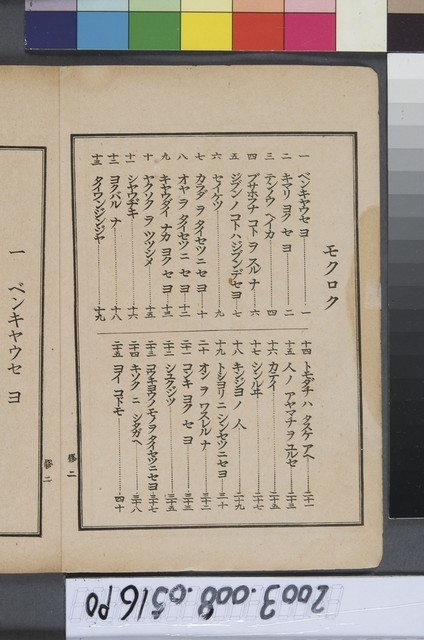 モクロク
一 ベンキヤウセヨ 一
二 キマリ ヨク セ ヨ 二
三 テンノウ ヘイカ 四
四 ブサホフナ コト ヲ スル ナ 六
五 ジブン ノ コト ハ ジブン デ セ ヨ 七
六 セイケツ 九
七 カラダ ヲ タイセツ ニ セ ヨ 十
八 オヤ ヲ タイセツ ニ セ ヨ 十二
九 キヤウダイ ナカ ヨク セ ヨ 十三
十 ヤクソク ヲ ツツシメ 十五
十一 シヤウヂキ 十六
十二 ヨクバル ナ 十八
十三 タイワンジンジヤ 十九
十四 トモダチ ハ タスケ アヘ 二十一
十五 人 ノ アヤマチ ヲ ユルセ 二十三
十六 カテイ 二十五
十七 シンルヰ 二十七
十八 キンジヨ ノ 人 二十九
十九 トシヨリ ニ シンセツ ニ セ ヨ 三十
二十 オン ヲ ワスレル ナ 三十二
二十一 コンキ ヨク セ ヨ 三十三
二十二 シユクジツ 三十五
二十三 コウキヨウ ノ モノ ヲ タイセツ ニ セ ヨ 三十七
二十四 キソク ニ シタガヘ 三十八
二十五 ヨイ コドモ 四十
修 二
一 ベンキヤウセ ヨ
修 二
2003.008.0516 P0